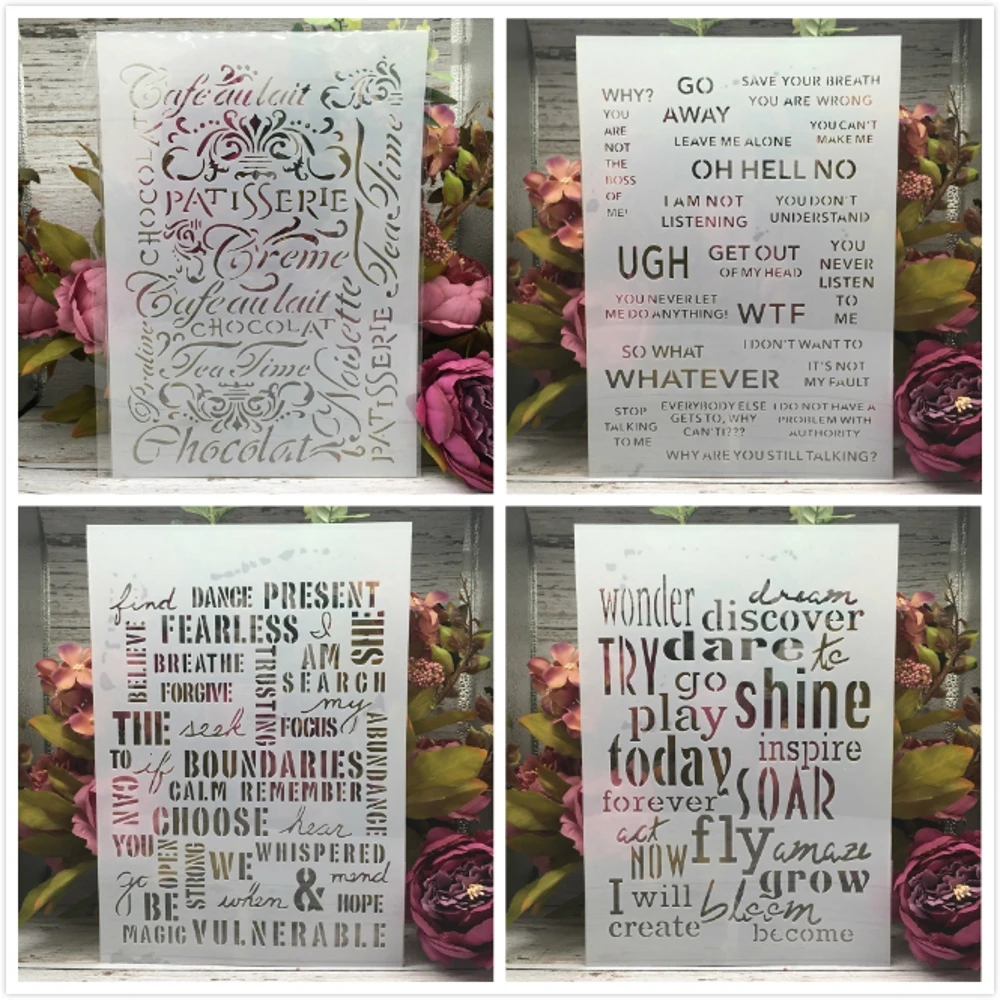 Café au lait
CHOCOLAT
PATISSERIE
Tea Time
Creme
Café au lait
CHOCOLAT
Praline
Tea Time
Noisette
PATISSERIE
Chocolat
WHY?
YOU
ARE
NOT
THE
BOSS
OF
ME!
GO
AWAY
SAVE YOUR BREATH
YOU ARE WRONG
LEAVE ME ALONE
YOU CAN'T
MAKE ME
OH HELL NO
I AM NOT
LISTENING
YOU DON'T
UNDERSTAND
UGH
GET OUT
OF MY HEAD
YOU
NEVER
LISTEN
TO
ME
YOU NEVER LET
ME DO ANYTHING!
WTF
SO WHAT
I DON'T WANT TO
WHATEVER
IT'S NOT
MY FAULT
STOP
TALKING
TO ME
EVERYBODY ELSE
GETS TO, WHY
CAN'T I???
I DO NOT HAVE A
PROBLEM WITH
AUTHORITY
WHY ARE YOU STILL TALKING?
find DANCE PRESENT
BELIEVE FEARLESS I HIS
BREATHE TRUSTING AM
FORGIVE SEARCH
my
THE seek FOCUS ABUNDANCE
TO if BOUNDARIES
CAN CALM REMEMBER
CHOOSE hear
YOU OPEN STRONG WE WHISPERED
go mend
BE when & HOPE
MAGIC VULNERABLE
wonder dream
discover
TRY dare to
go shine
play
today inspire
forever SOAR
act fly
NOW amaze
grow
I will bloom
create become